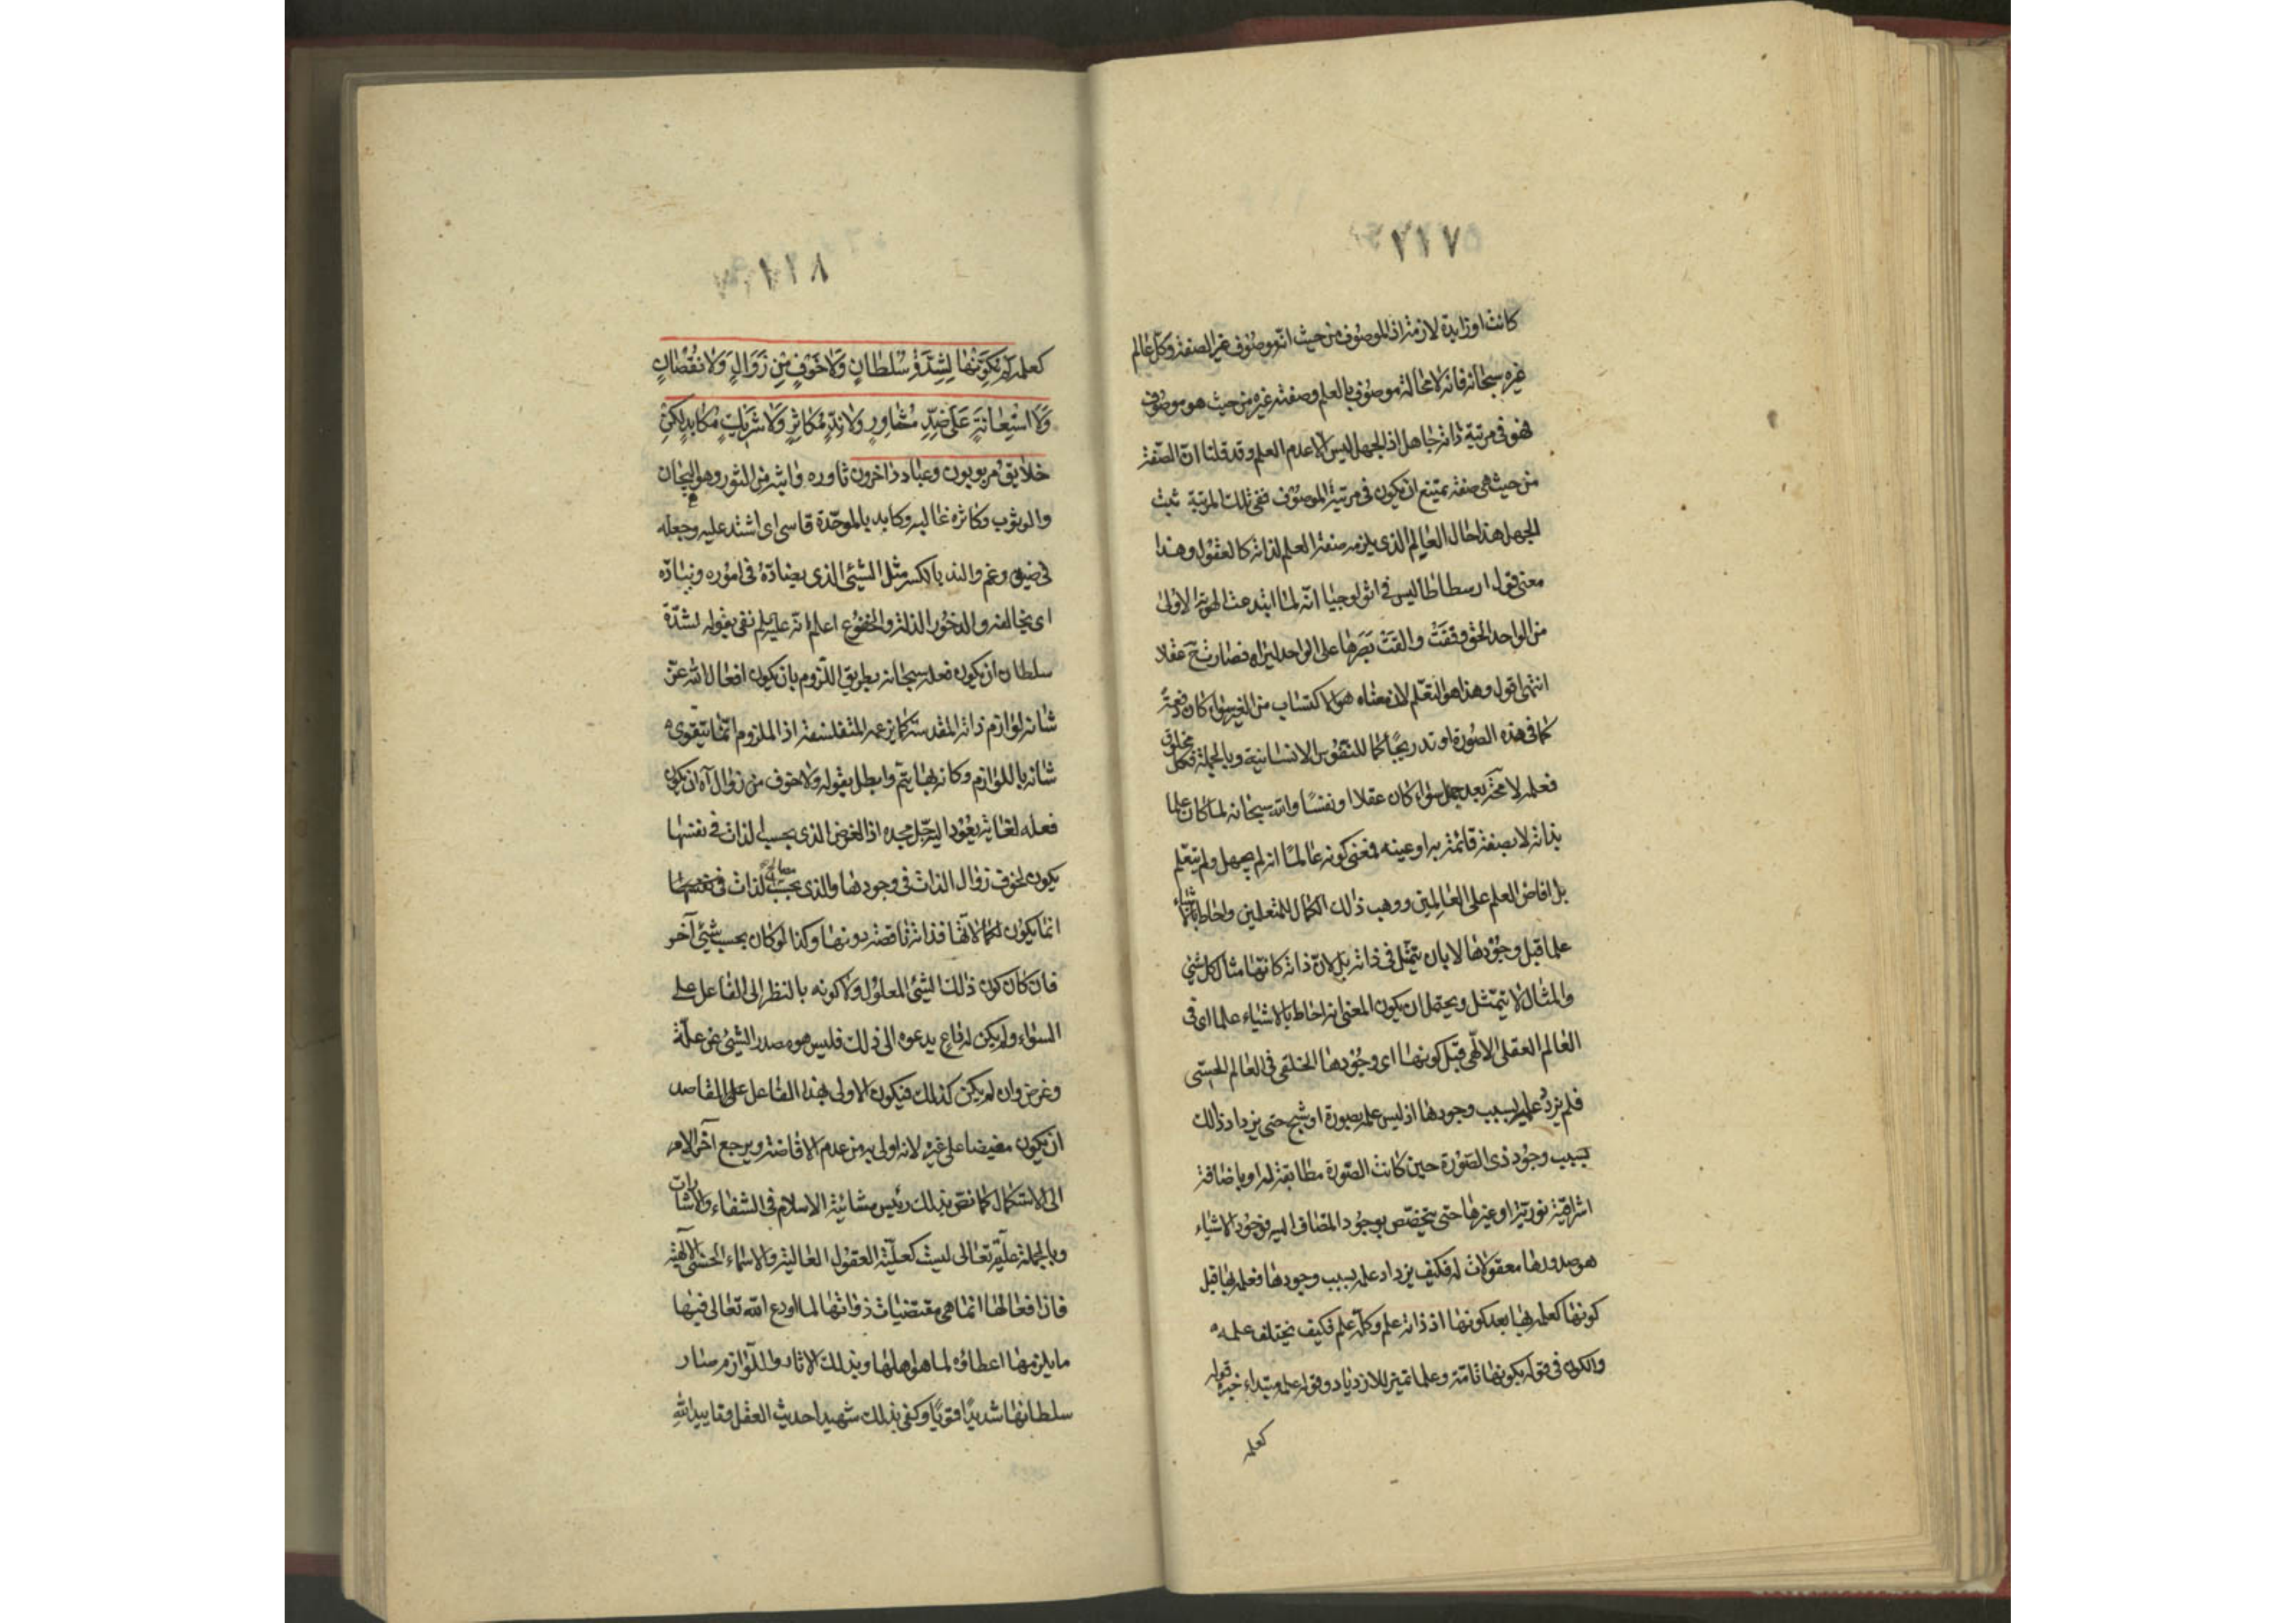 ١١٧
كانت او زايدة لازمة اذ الموصوف من حيث انه موصوف غير الصفة وكل عالم
غيره سبحانه فانه لا محالة موصوف بالعلم وصفته غيره من حيث هو موصوف
فهو فى مرتبة ذاته جاهل اذ الجهل ليس الا عدم العلم وقد قلنا ان الصفة
من حيث هى صفة يمتنع ان يكون فى مرتبة الموصوف ففى تلك المرتبة ثبت
الجهل هذا حال العالم الذى يلزمه صفة العلم لذاته كالعقول وهذا
معنى قول ارسطاطاليس فى اثولوجيا انه لما ابتدعت الهوية الاولى
من الواحد الحق وقفت والقت بصرها على الواحد ليراه فصارت ح عقلا
انتهى اقول وهذا هو التعلم لان معناه هو الاكتساب من الغير سواء كان دفعة
كما فى هذه الصورة او تدريجًا كما للنفوس الانسانية وبالجملة فكل مخلوق
فعلمه لا محة بعد جهل سواء كان عقلا او نفسًا والله سبحانه لما كان علما
بذاته لا بصفة قائمة به او عينه فمعنى كونه عالمًا انه لم يجهل ولم يتعلم
بل افاض العلم على العالمين ووهب ذلك الكمال للمتعلمين واحاط بالاشياء
علما قبل وجودها لا بان يتمثل فى ذاته بل لان ذاته كانها مثال كل شئ
والمثال لا يتمثل ويحتمل ان يكون المعنى انه احاط بالاشياء علما اى فى
العالم العقلى الالهى قبل كونها اى وجودها الخلقى فى العالم الحسى
فلم يزدد علمه بسبب وجودها اذ ليس علمه بصورة او شبح حتى يزداد ذلك
بسبب وجود ذى الصورة حين كانت الصورة مطابقة له او باضافة
اشراقية نورية او غيرها حتى يتخصص بوجود المضاف اليه فوجود الاشياء
هو صدورها معقولات له فكيف يزداد علمه بسبب وجودها فعلمه بها قبل
كونها كعلمه بها بعد كونها اذ ذاته علم وكله علم فكيف يختلف علمه
والكون فى قوله بكونها تامة وعلما تميز للازدياد وقوله علمه مبتداء خبره قوله
كعلمه
١١٨
كعلمه لم يكونها لشدة سلطان ولا خوف من زوال ولا نقصان
ولا استعانة على ضد مثاور ولا ند مكاثر ولا شريك مكابد لكن
خلايق مربوبون وعباد داخرون ثاوره واثبه من الثور وهو الهيجان
والوثوب وكاثره غالبه وكابده بالموحدة قاسى اى اشتد عليه وجعله
فى ضيق وغم والند بالكسر مثل الشئ الذى يضاده فى اموره وينادّه
اى يخالفه والدخور الذلة والخضوع اعلم انه عليه السلم نفى بقوله لشدة
سلطان ان يكون فعله سبحانه بطريق اللزوم بان يكون افعال الله عز
شانه لوازم ذاته المقدسة كما يزعمه المتفلسفة اذ الملزوم انما يتقوى
شانه باللوازم وكانه بها يتم وابطل بقوله ولا خوف من زوال آه ان يكون
فعله لغاية يعود اليه جل مجده اذ الغرض الذى بحسب الذات فى نفسها
يكون لخوف زوال الذات فى وجودها والذى بحسب كمال الذات
انما يكون لكمالاتها فذاته ناقصة دونها وكذا لو كان بحسب شئ آخر
فان كان كون ذلك الشئ المعلول ولا كونه بالنظر الى الفاعل على
السواء ولم يكن له داع يدعوه الى ذلك فليس هو مصدر الشئ عن علة
وغرض وان لم يكن كذلك فيكون الاولى بهذا الفاعل على القاصد
ان يكون مفيضا على غيره لانه اولى به من عدم الافاضة ويرجع آخر الامر
الى الاستكمال كما نص بذلك رئيس مشائية الاسلام فى الشفاء والاشارات
وبالجملة عليّته تعالى ليست كعلية العقول العالية والاسماء الحسنى الالهية
فان افعالها انما هى مقتضيات ذواتها لما اودع الله تعالى فيها
ما يلزمها اعطاؤه لما هو اهلها وبذلك الاثار واللوازم صار
سلطانها شديدًا قويًا وكفى بذلك شهيدا حديث العقل وتاييد الله